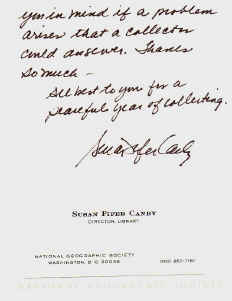 you in mind if a problem
arises that a collector
could answer. Thanks
so much –
All best to you for a
peaceful year of collecting.
Susan Fifer Canby
SUSAN FIFER CANBY
DIRECTOR, LIBRARY
NATIONAL GEOGRAPHIC SOCIETY
WASHINGTON, D.C. 20036
(202) 857-7787